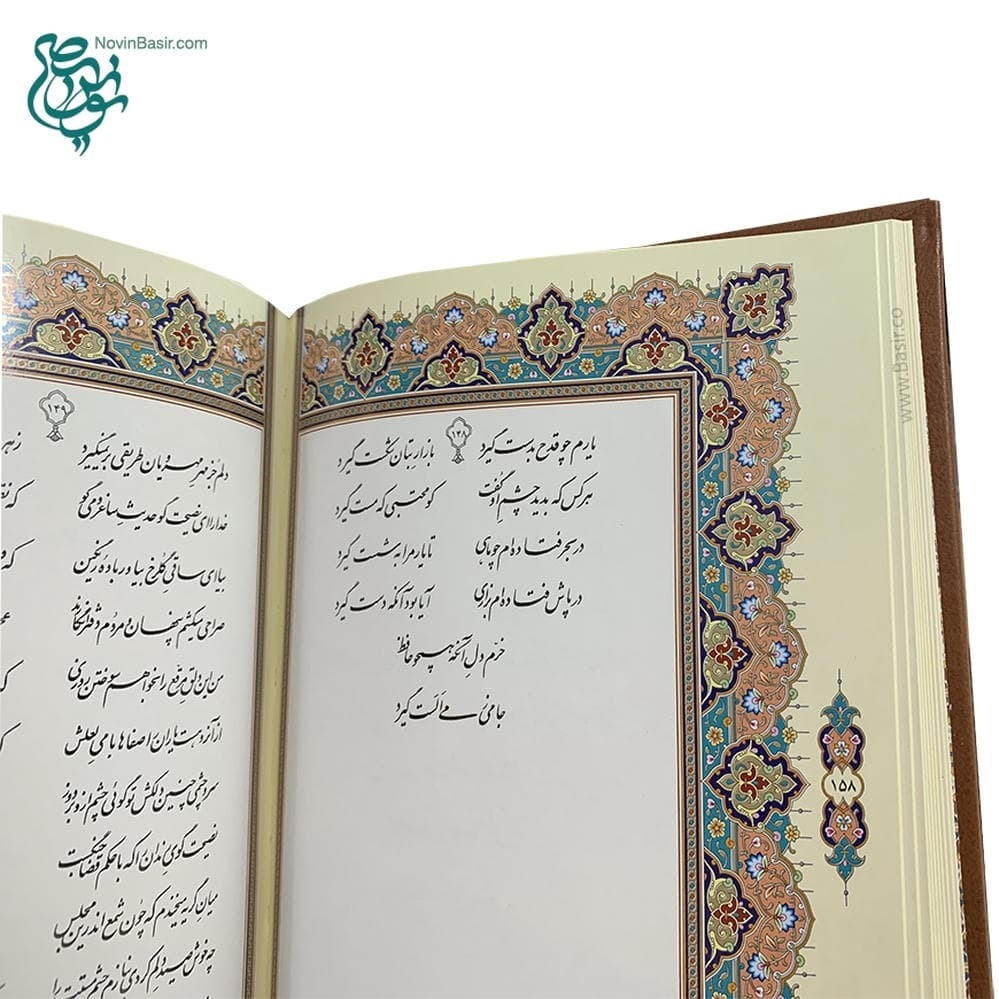 NovinBasir.com
www.Basir.co
۱۴۸
یارم چو قدح بدست گیرد بازار بتان شکست گیرد
هر کس که بدید چشم او گفت کو محتسبی که مست گیرد
در بحر فتاده‌ام چو ماهی تا یار مرا به شست گیرد
در پاش فتاده‌ام بزاری آیا بود آنکه دست گیرد
خرم دل آنکه همچو حافظ
جامی ز می الست گیرد
۱۵۸
۱۴۹
دلم جز مهر مهرویان طریقی بر نمیگیرد زهر
خدا را ای نصیحت گو حدیث ساغر و می گو که نق
بیا ای ساقی گلرخ بیاور باده رنگین که
صراحی میکشم پنهان و مردم دفتر انگارند
من این دلق مرقع را بخواهم سوختن روزی
از آنرو هست یاران را صفاها با می لعلش
سر و چشمی چنین دلکش تو گوئی چشم ازو بردوز
نصیحت گوی رندان را که با حکم قضا جنگست
میان گریه میخندم که چون شمع اندرین مجلس
چه خوش صید دلم کردی بنازم چشم مستت را